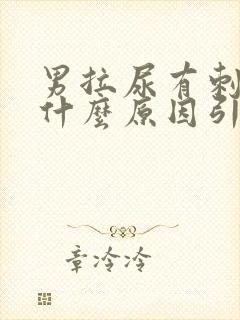 男拉尿有刺
什麼原因引
章冷冷